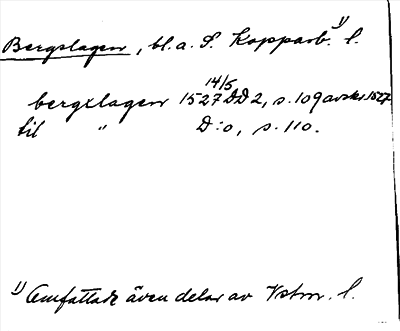 Bergslagen, bl. a. S. Kopparb. 1) l.
14/5
bergxlagen 1527 DD 2, s. 109 avskr. 1527
til " D:o, s. 110.
1) Omfattade även delar av Vstm. l.